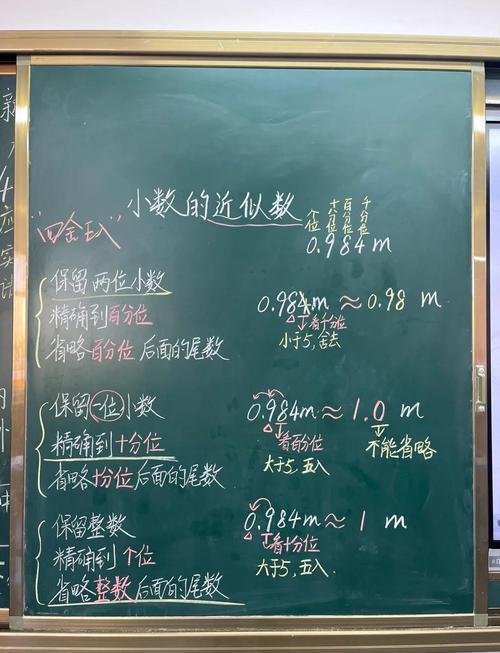 小数的近似数
"四舍五入"
个位 十分位 百分位 千分位
0.984m
保留两位小数
精确到百分位
省略百分位后面的尾数
0.984m≈0.98 m
看千分位
小于5,舍去
保留一位小数
精确到十分位
省略十分位后面的尾数
0.984m≈1.0 m
看百分位
不能省略
大于5,五入
保留整数
精确到个位
省略整数后面的尾数
0.984m≈1 m
看十分位
大于5,五入.